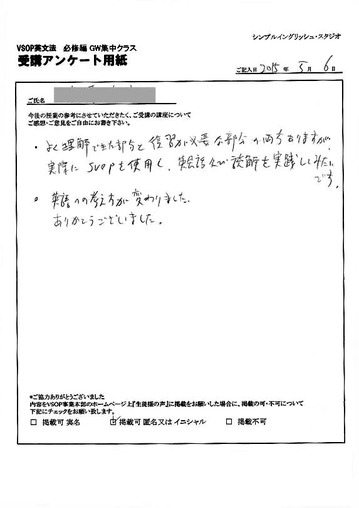 シンプルイングリッシュ・スタジオ
VSOP英文法 必修編 GW集中クラス
受講アンケート用紙
ご記入日 2015 年 5 月 6 日
ご氏名
今後の授業の参考にさせていただきたく、ご受講の講座について
ご感想・ご意見をご自由にお書き下さい。
・よく理解できた部分と復習が必要な部分の両方ありますが、
実際にSVOPを使用し、英会話及び読解を実践してみたい
です。
・英語への考え方が変わりました。
ありがとうございました。
*ご協力ありがとうございました
内容をVSOP事業本部のホームページ上『生徒様の声』に掲載をお願いした場合に、掲載の可・不可について
下記にチェックをお願い致します。
□ 掲載可 実名 ☑ 掲載可 匿名又はイニシャル □ 掲載不可